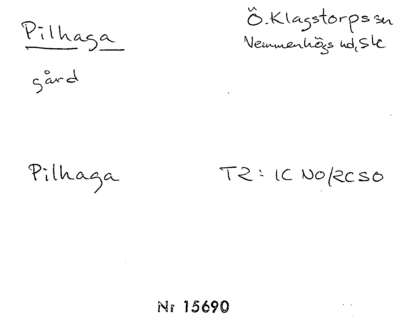 Pilhaga
Ö. Klagstorps sn
Vemmenhögs hd, Sk
gård
Pilhaga
T2: 1C NO/2C SO
Nr 15690